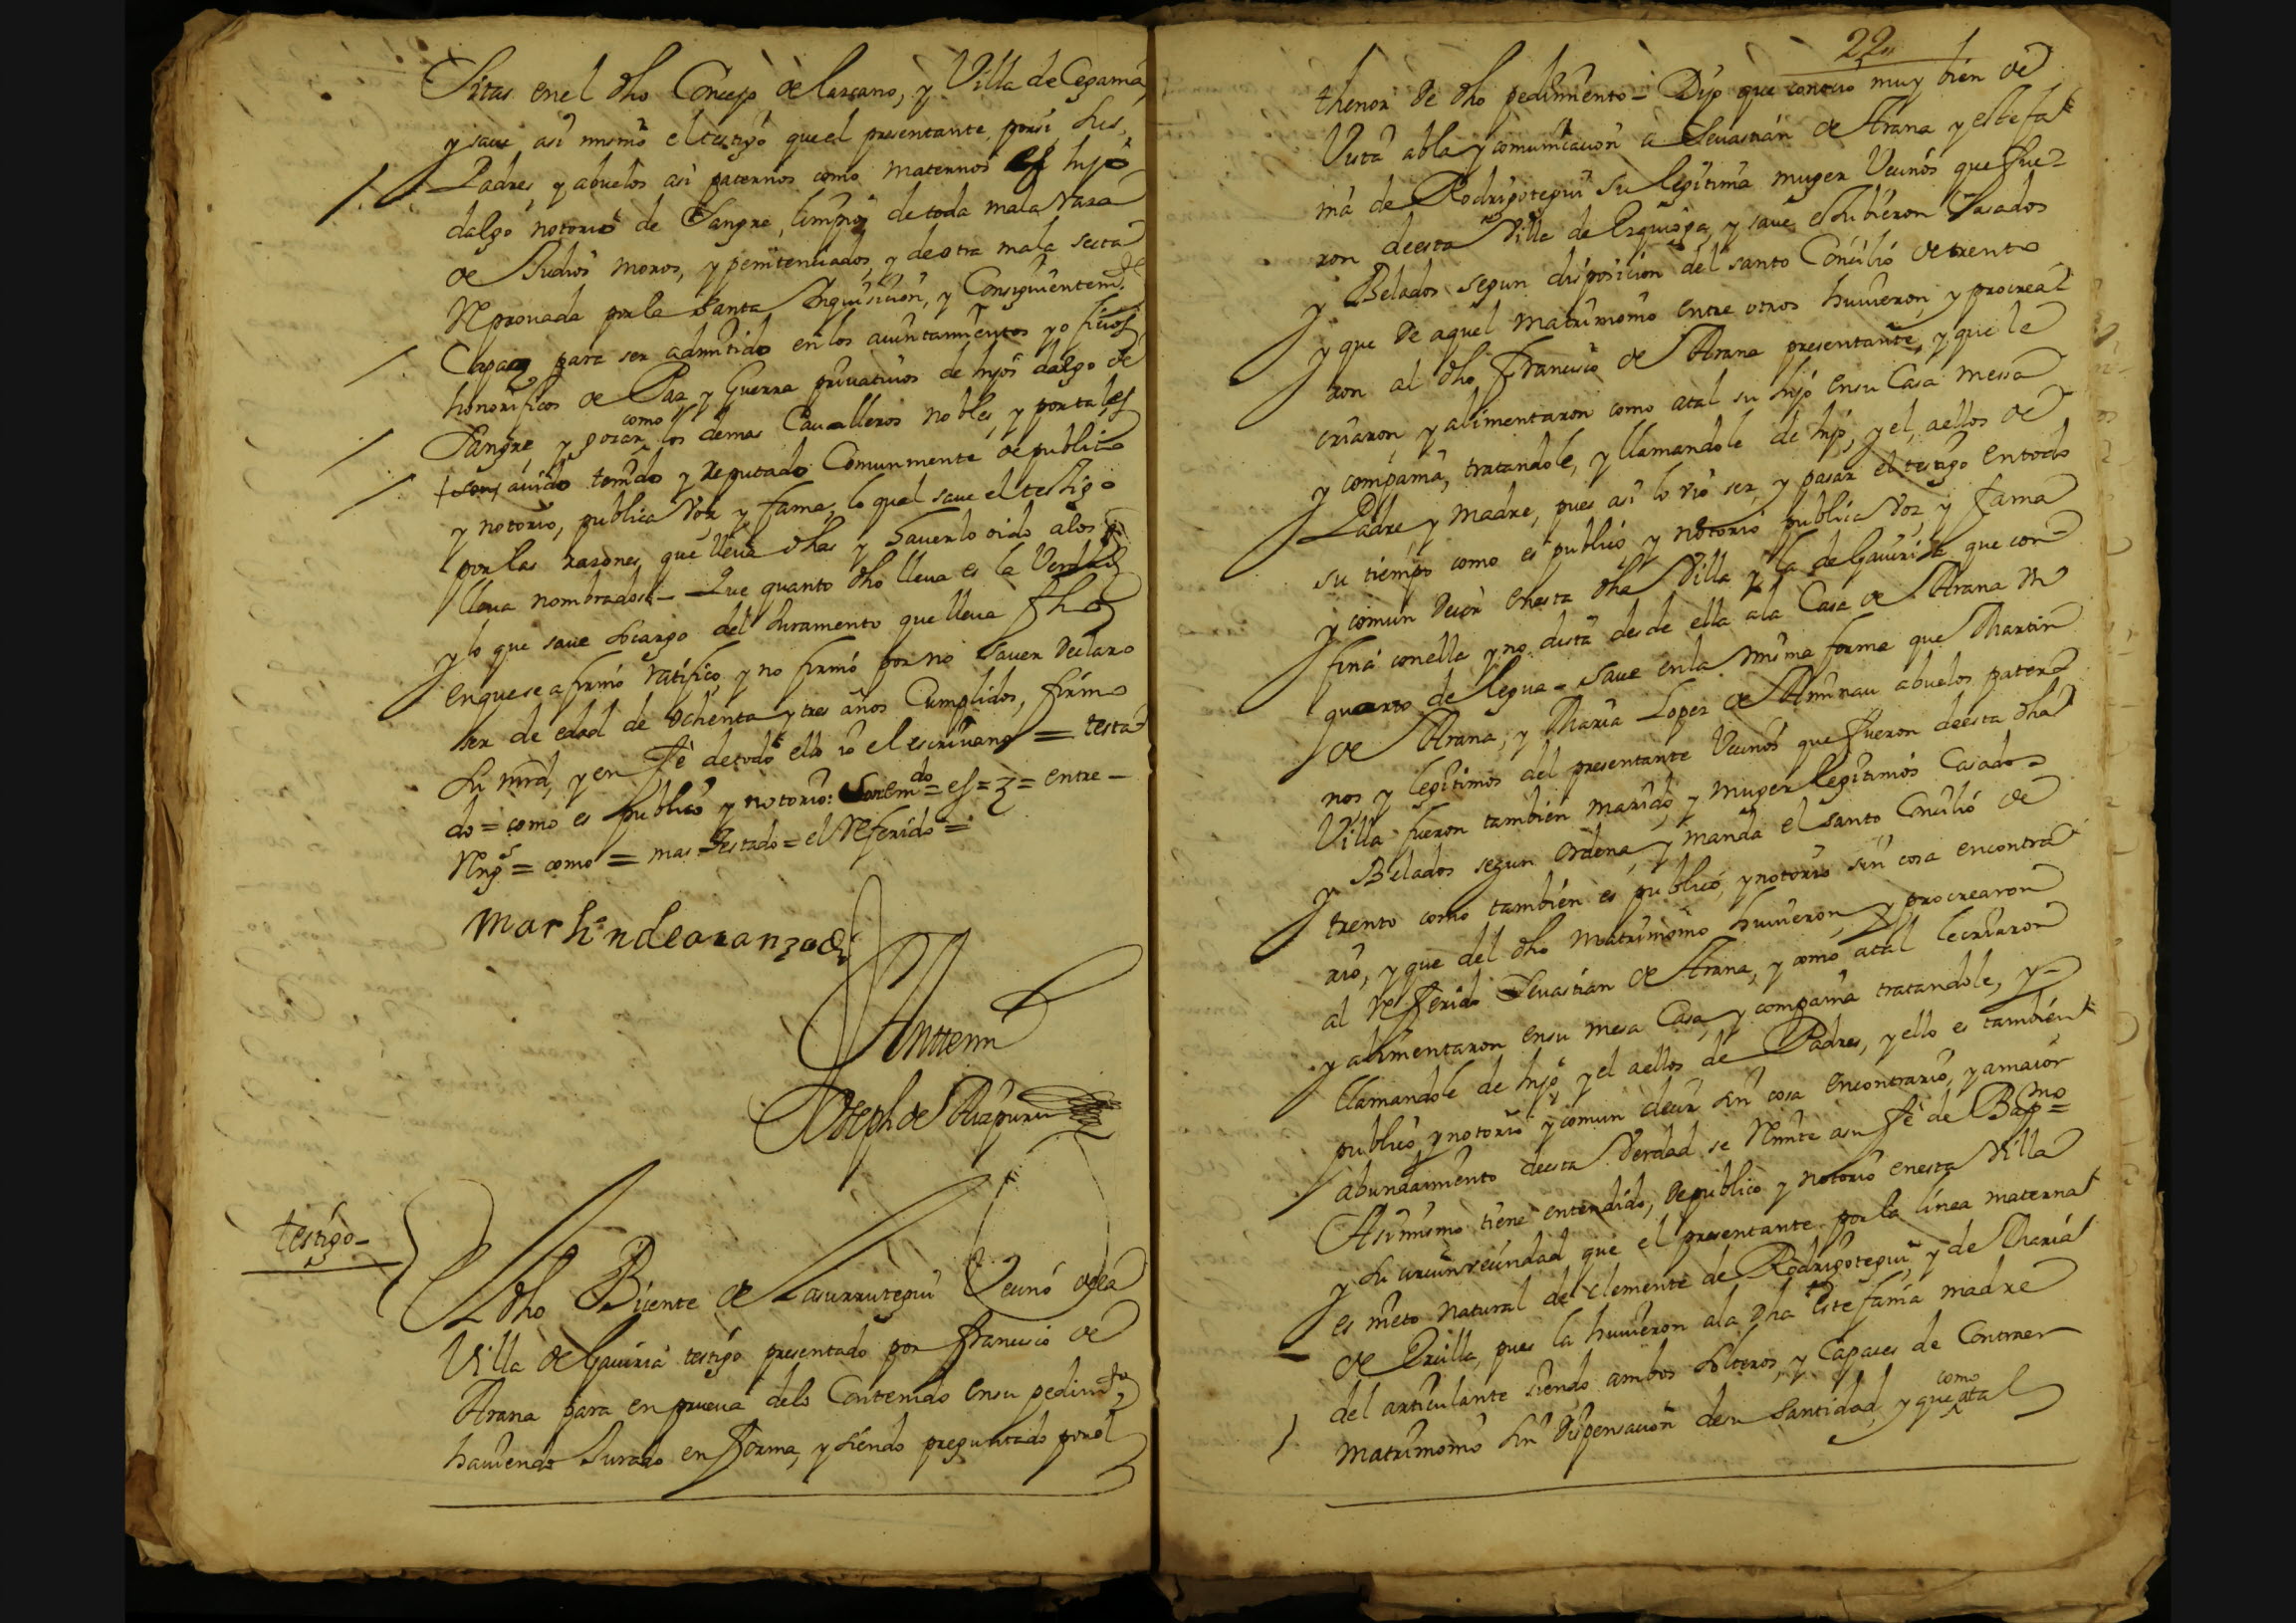 Sitas en el dho Concejo de lazcano, y Villa de Cegama,
y saue asi mismo el testigo que el presentante, por si sus
Padres, y abuelos asi paternos como maternos es hijo
dalgo notorio de Sangre, limpio de toda mala raza
de Judios moros, y penitenciados, y de otra mala secta
Reprouada por la Santa Inquisicion, y Consiguientemte
Capaz para ser admitido en los aiuntamientos y oficios
honorificos de Paz, y Guerra priuatiuos de hijos dalgo de
Sangre, y gozar como los demas Caualleros nobles, y por tales
auido tenido y Reputado Comunmente de publico
y notorio, publica Voz y fama, lo qual saue el testigo
por las razones que lleua dhas y hauerlo oido a los q
lleua nombrados - Que quanto dho lleua es la Verdad
y lo que saue socargo del Juramento que lleua fho
en que se afirmó ratificó, y no firmó por no sauer declaro
ser de edad de ochenta y tres años Cumplidos, firmo
Su mrd, y en fè de todo ello io el escriuano = testa-
do = como es publico y notorio: emdo = es = z = entre -
Rengs = como = mas testado = el Referido =
Martin de aranzadi
Anttemi
Joseph de Aiapuru
testigo -
El dho Bicente de Lasurrutegui Vecino de la
Villa de Gauiria testigo presentado por francisco de
Arana para en prueua de lo Contenido en su pedimto
hauiendo Jurado en forma, y siendo preguntado por el
22
thenor de dho pedimiento - Dijo que conocio muy bien de
Vista abla y comunicacion à Seuastian de Arana y estefa-
nia de Rodrigotegui su legitima muger Vecinos que fue-
ron de esta Villa de Ezquioga, y saue estubieron Casados
y Belados segun disposicion del santo Concilio de trento
y que de aquel matrimonio entre otros huuieron, y procrea-
ron al dho francisco de Arana presentante, y que le
criaron, y alimentaron como a tal su hijo en su Casa messa
y compania, tratandole, y llamandole de hijo, y el, a ellos de
Padre y madre, pues asi lo vio ser, y pasar el testigo en todo
su tiempo como es publico, y notorio publica voz, y fama
y comun decir en esta dha Villa y la de Gauiria que con-
fina con ella y no dista desde ella a la Casa de Arana un
quarto de legua - Saue en la misma forma que Martin
de Arana, y Maria Lopez de Aminau abuelos pater-
nos y legitimos del presentante Vecinos que fueron de esta dha
Villa fueron tambien marido, y muger legitimos Casados
y Belados segun ordena, y manda el santo Concilio de
trento como tambien es publico, y notorio sin cosa en contra-
rio, y que del dho matrimonio huuieron, y procrearon
al Referido Seuastian de Arana, y como a tal le criaron
y alimentaron en su mesa Casa, y compania tratandole, y -
llamandole de hijo y el a ellos de Padres, y ello es tambien
publico y notorio y comun decir sin cosa en contrario, y a maior
abundamiento de esta Verdad se Remite a su fè de Bapmo =
Asi mismo tiene entendido, de publico y notorio en esta Villa
y su circunvecindad que el presentante por la linea materna
es nieto natural de Clemente de Rodrigotegui, y de Maria
de Orilla, pues la huuieron a la dha Estefania madre
del articulante siendo ambos Solteros, y Capaces de Contraer
matrimonio sin dispensacion de su Santidad, y que como a tal